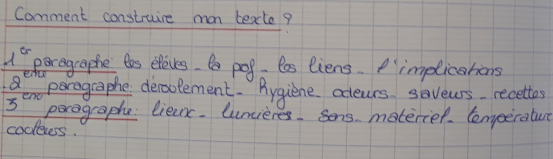 Comment construire mon texte ?
1er paragraphe : les élèves - la prof - les liens - l'implications
2eme paragraphe : déroulement - Hygiène - odeurs - saveurs - recettes
3eme paragraphe : lieux - lumières - sons - matériel - température
couleurs.